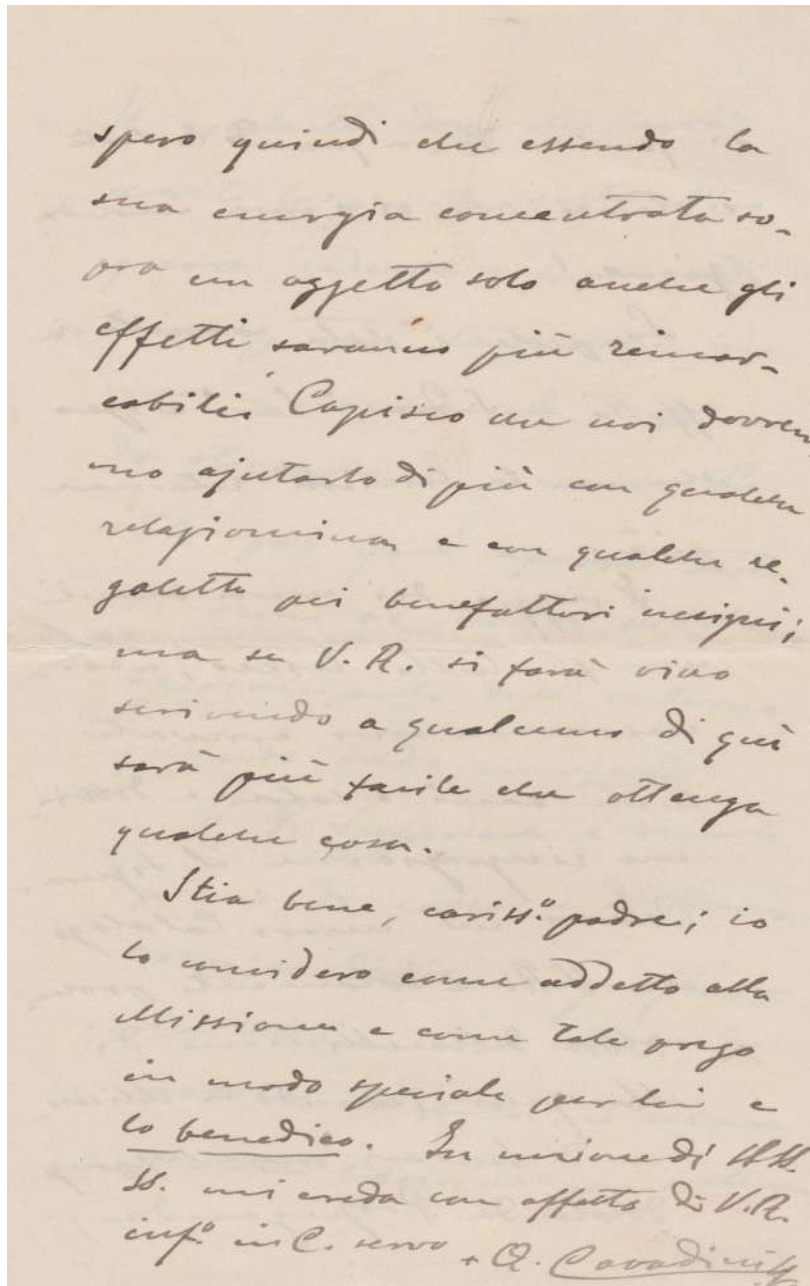 spero quindi che essendo la
sua energia concentrata so-
pra un oggetto solo anche gli
effetti saranno più rimar-
cabili. Capisco che noi dovrem
mo ajutarlo di più con qualche
relazioncina e con qualche re-
galetto pei benefattori insigni;
ma se V. R. si farà vivo
scrivendo a qualcuno di quì
sarà più facile che ottenga
qualche cosa.
Stia bene, cariss.º padre; io
lo considero come addetto alla
Missione e come tale prego
in modo speciale per lei e
lo benedico. In unione di
SS. mi creda con affetto di V. R.
inf.º in C. servo + A. Cavadini